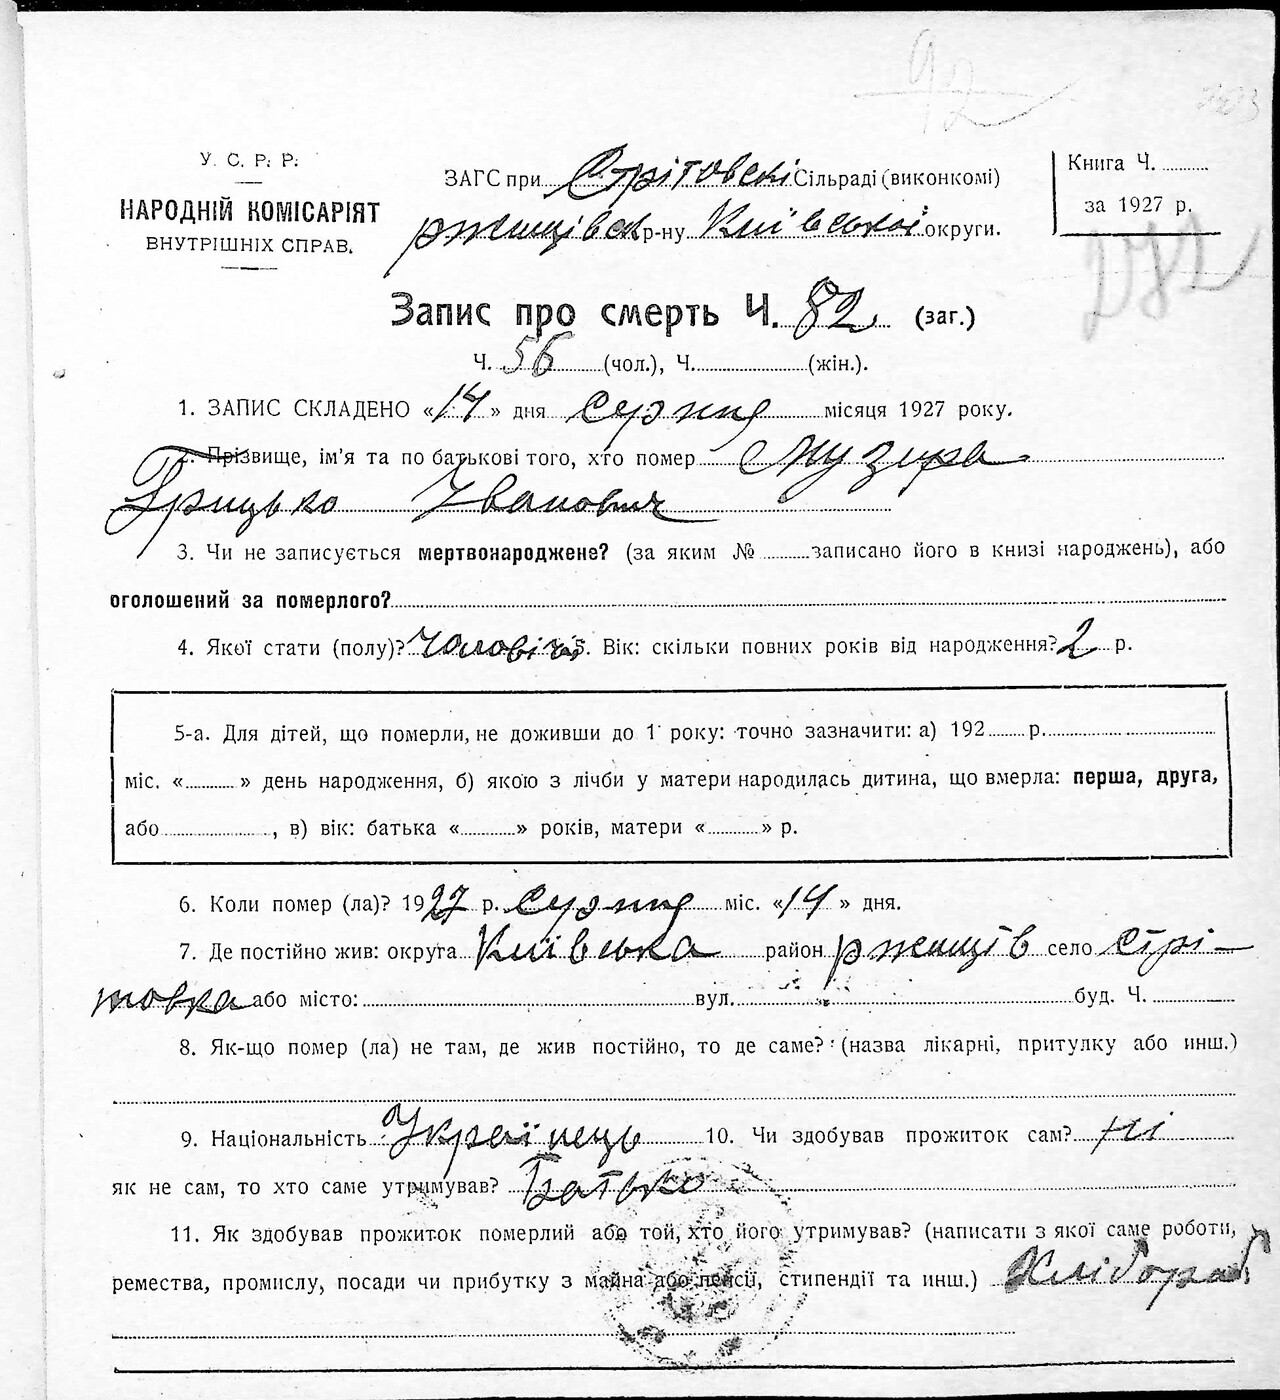 92
У. С. Р. Р.
НАРОДНІЙ КОМІСАРІЯТ
ВНУТРІШНІХ СПРАВ.
ЗАГС при Стрітовскі Сільраді (виконкомі)
ржищівск р-ну Київської округи.
Книга Ч.
за 1927 р.
282
Запис про смерть Ч. 82 (заг.)
Ч. 56 (чол.), Ч. (жін.).
1. ЗАПИС СКЛАДЕНО «14» дня серпня місяця 1927 року.
2. Прізвище, ім'я та по батькові того, хто помер Музира
Грицько Іванович
3. Чи не записується мертвонароджене? (за яким № записано його в книзі народжень), або
оголошений за померлого?
4. Якої стати (полу)? чоловічої 5. Вік: скільки повних років від народження? 2 р.
5-а. Для дітей, що померли, не доживши до 1 року: точно зазначити: а) 192 р.
міс. « » день народження, б) якою з лічби у матери народилась дитина, що вмерла: перша, друга,
або , в) вік: батька « » років, матери « » р.
6. Коли помер (ла)? 1927 р. серпня міс. «14» дня.
7. Де постійно жив: округа Київська район ржищів село Стрі-
товка або місто: вул. буд. Ч.
8. Як-що помер (ла) не там, де жив постійно, то де саме? (назва лікарні, притулку або инш.)
9. Національність Українець 10. Чи здобував прожиток сам? ні
як не сам, то хто саме утримував? Батько
11. Як здобував прожиток померлий або той, хто його утримував? (написати з якої саме роботи,
ремества, промислу, посади чи прибутку з майна або пенсії, стипендії та инш.) Хлібороб